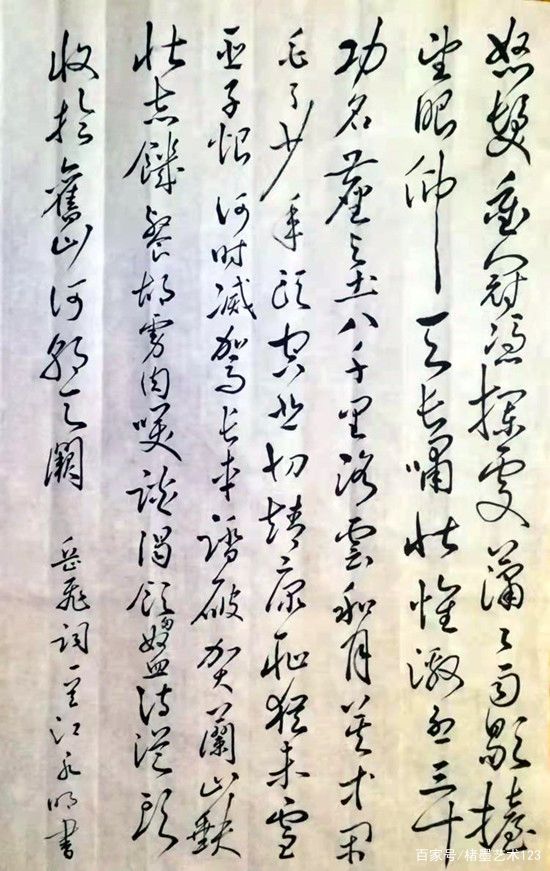 怒髮衝冠憑攔處瀟瀟雨歇擡
望眼仰天長嘯壯懷激烈三十
功名塵与土八千里路雲和月莫等閑
白了少年頭空悲切靖康恥猶未雪
臣子恨何時滅駕長車踏破賀蘭山缺
壯志饑餐胡虜肉笑談渴飲匈奴血待從頭
收拾舊山河朝天闕
岳飛詞一江永明書
百家号/楮墨艺术123